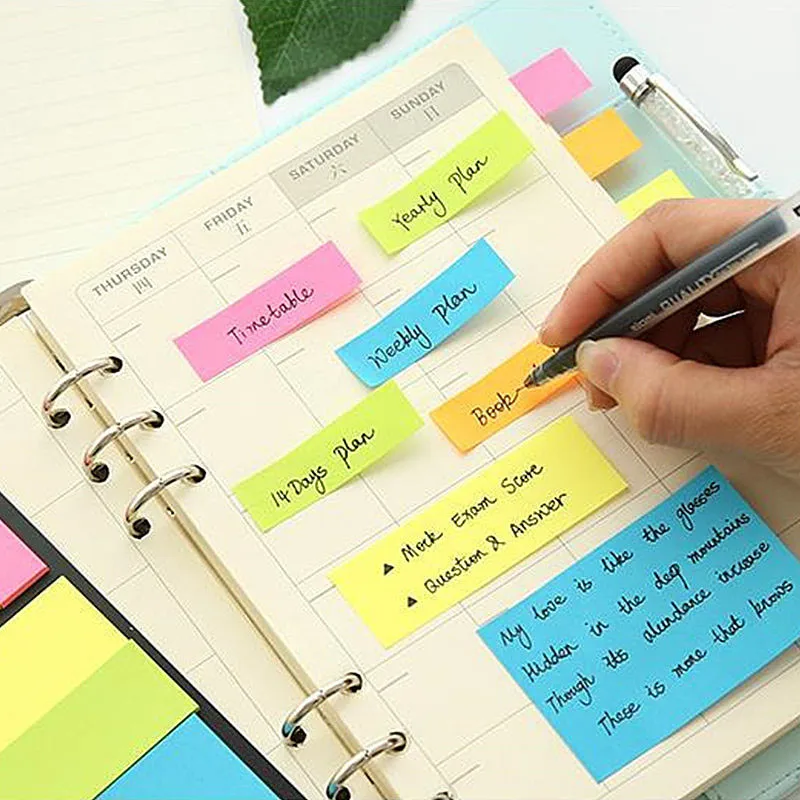 THURSDAY
四
FRIDAY
五
SATURDAY
六
SUNDAY
日
Yearly plan
Timetable
Weekly plan
Book
14 Days plan
▲ Mock Exam Score
▲ Question & Answer
My love is like the glasses
Hidden in the deep mountains
Though its abundance increase
These is more that knows